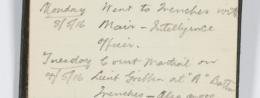 Monday Went to Trenches with
8/5/16 Mair - Intelligence
officer.
Tuesday Court Martial on
9/5/16 Lieut at "A" Battn
Trenches - Also